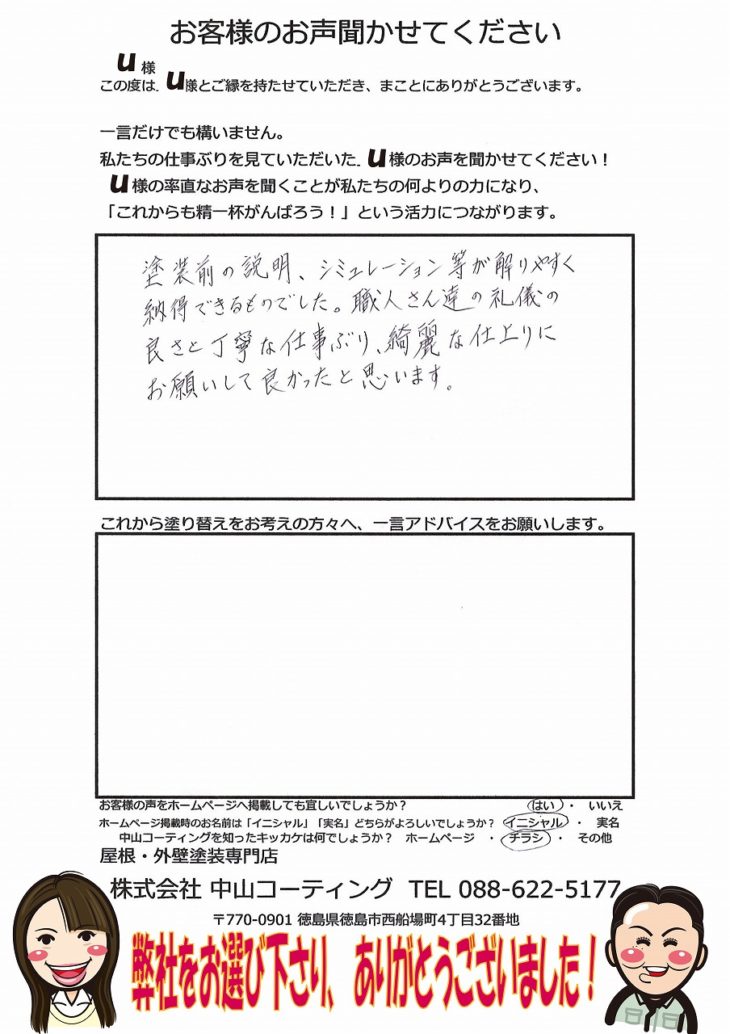 お客様のお声聞かせてください
u 様
この度は、u様とご縁を持たせていただき、まことにありがとうございます。
一言だけでも構いません。
私たちの仕事ぶりを見ていただいた、u様のお声を聞かせてください！
u様の率直なお声を聞くことが私たちの何よりの力になり、
「これからも精一杯がんばろう！」という活力につながります。
塗装前の説明、シミュレーション等が解りやすく
納得できるものでした。職人さん達の礼儀の
良さと丁寧な仕事ぶり、綺麗な仕上りに
お願いして良かったと思います。
これから塗り替えをお考えの方々へ、一言アドバイスをお願いします。
お客様の声をホームページへ掲載しても宜しいでしょうか？ はい ・ いいえ
ホームページ掲載時のお名前は「イニシャル」「実名」どちらがよろしいでしょうか？ イニシャル ・ 実名
中山コーティングを知ったキッカケは何でしょうか？ ホームページ ・ チラシ ・ その他
屋根・外壁塗装専門店
株式会社 中山コーティング TEL 088-622-5177
〒770-0901 徳島県徳島市西船場町4丁目32番地
弊社をお選び下さり、ありがとうございました！